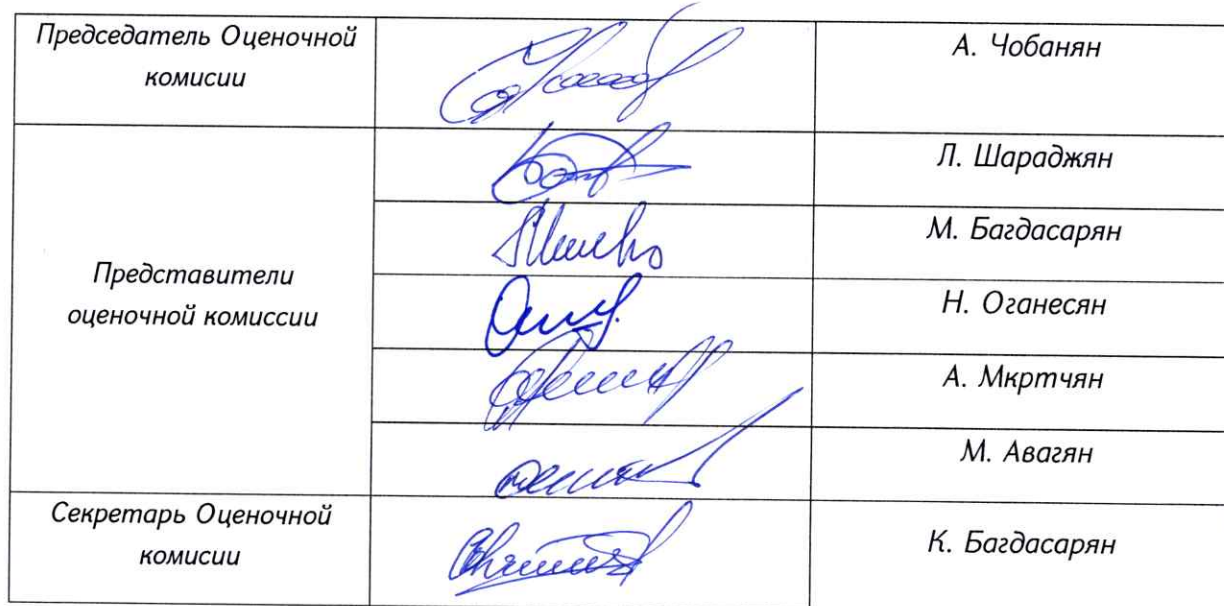 Председатель Оценочной
комисии
А. Чобанян
Представители
оценочной комиссии
Л. Шараджян
М. Багдасарян
Н. Оганесян
А. Мкртчян
М. Авагян
Секретарь Оценочной
комисии
К. Багдасарян